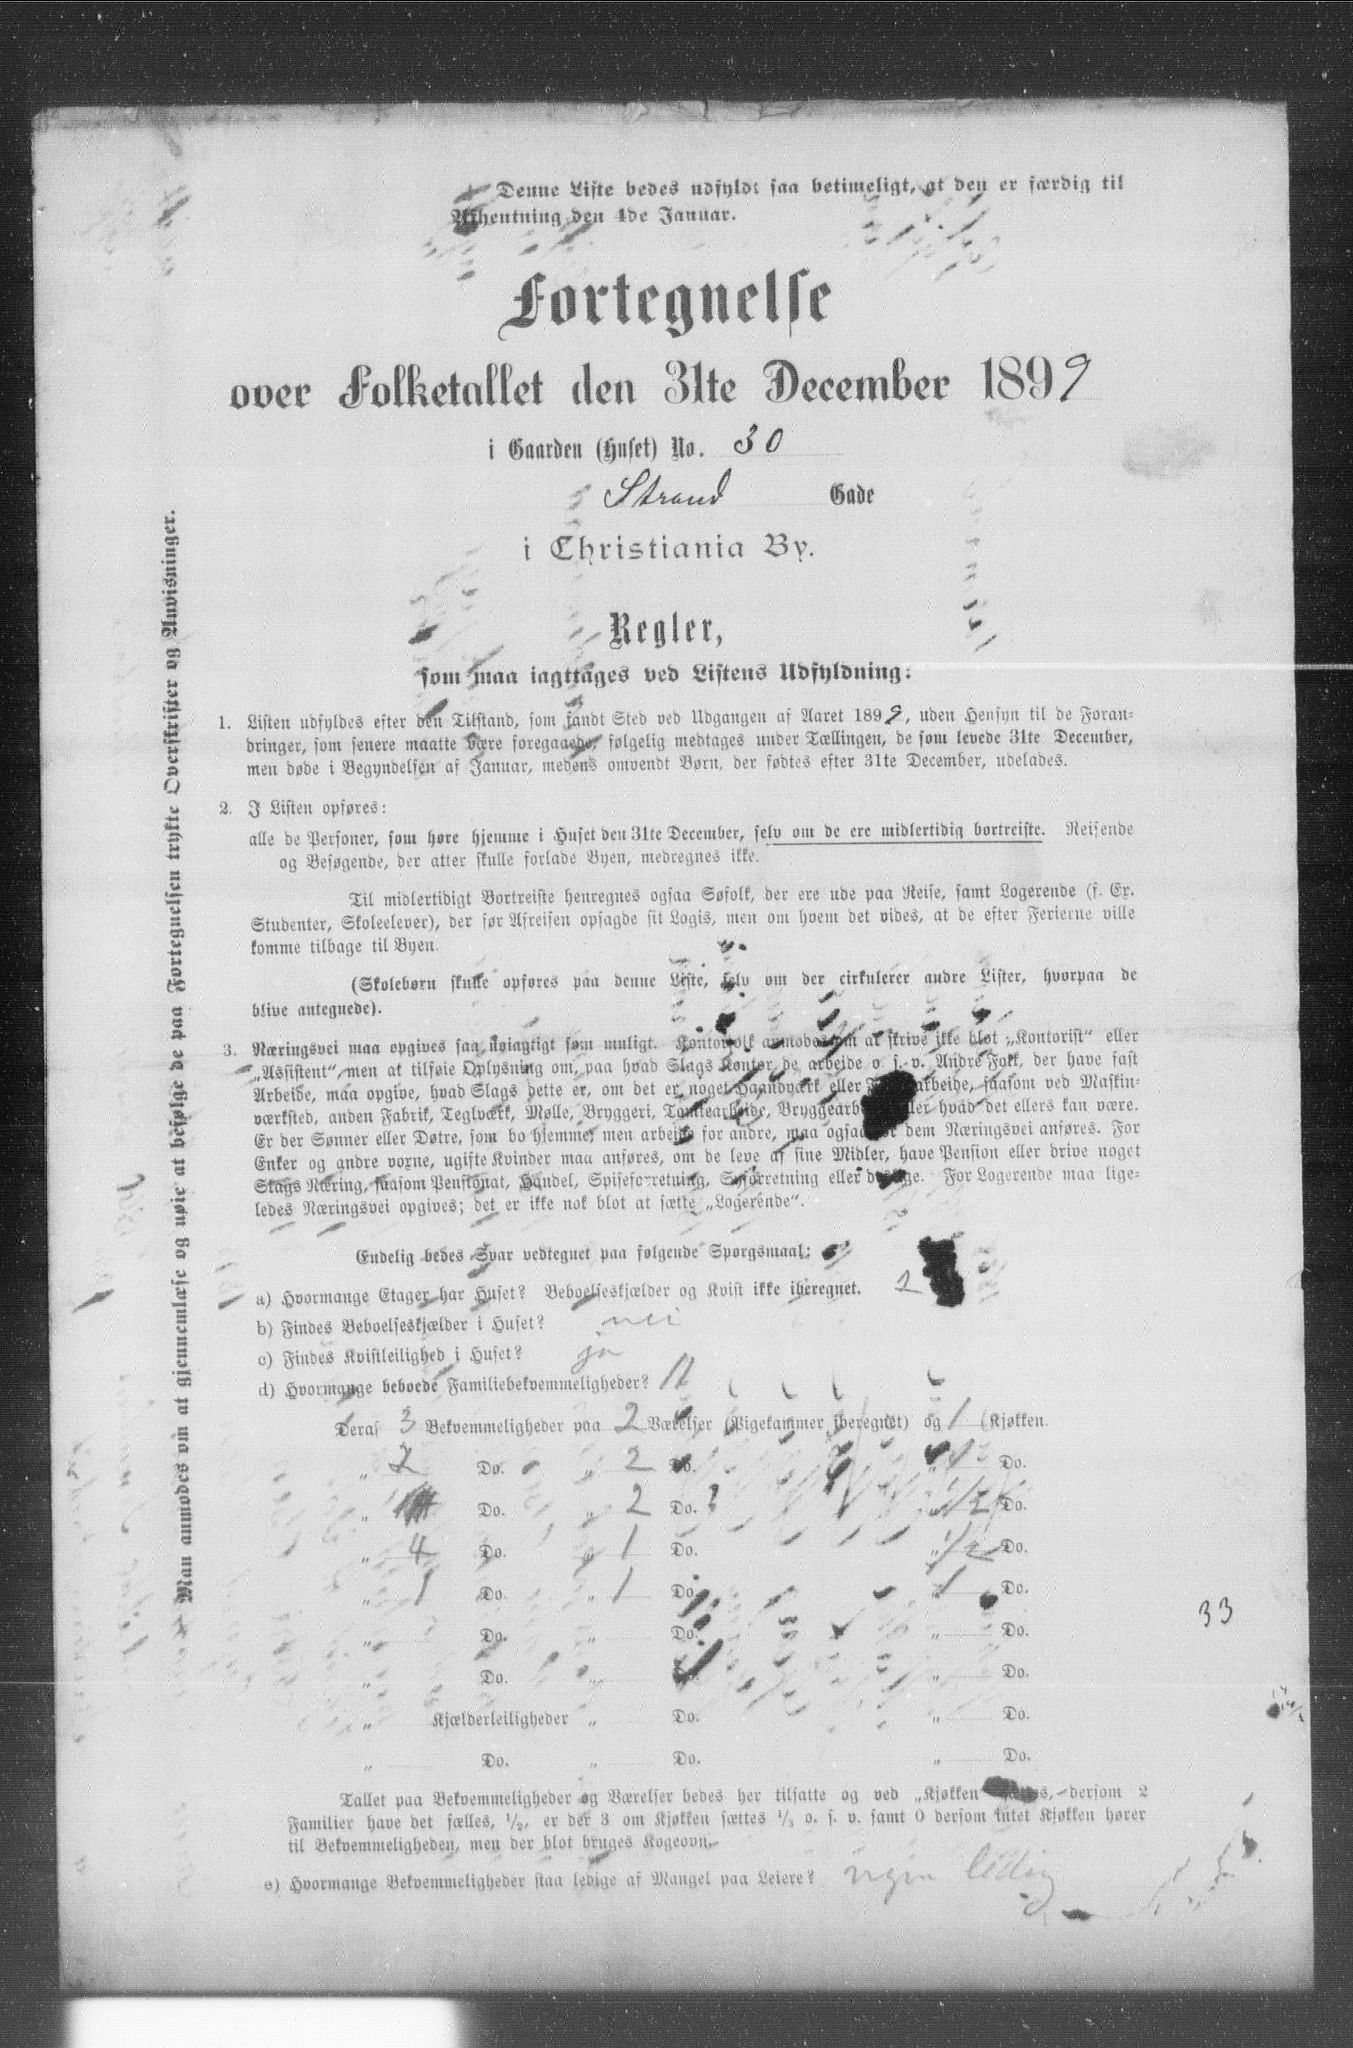 Denne Liste bedes udfyldt saa betimeligt, at den er færdig til
Afhentning den 4de Januar.
Fortegnelse
over Folketallet den 31te December 1899
i Gaarden (Huset) No. 30
Strand Gade
i Christiania By.
Regler,
som maa iagttages ved Listens Udfyldning:
1. Listen udfyldes efter den Tilstand, som fandt Sted ved Udgangen af Aaret 1899, uden Hensyn til de Foran-
dringer, som senere maatte være foregaaede, følgelig medtages under Tællingen, de som levede 31te December,
men døde i Begyndelsen af Januar, medens omvendt Børn, der fødtes efter 31te December, udelades.
2. I Listen opføres:
alle de Personer, som høre hjemme i Huset den 31te December, selv om de ere midlertidig bortreiste. Reisende
og Besøgende, der atter skulle forlade Byen, medregnes ikke.
Til midlertidigt Bortreiste henregnes ogsaa Søfolk, der ere ude paa Reise, samt Logerende (f. Ex.
Studenter, Skoleelever), der før Afreisen opsagde sit Logis, men om hvem det vides, at de efter Ferierne ville
komme tilbage til Byen.
(Skolebørn skulle opføres paa denne Liste, selv om der cirkulerer andre Lister, hvorpaa de
blive antegnede).
3. Næringsvei maa opgives saa nøiagtigt som muligt. Kontorfolk anmodes om at skrive ikke blot „Kontorist“ eller
„Assistent“, men at tilføie Oplysning om, paa hvad Slags Kontor de arbeide o. s. v. Andre Folk, der have fast
Arbeide, maa opgive, hvad Slags dette er, om det er noget Haandværk eller arbeide, saasom ved Maskin-
værksted, anden Fabrik, Teglværk, Mølle, Bryggeri, Tomtearbeide, Bryggearb eller hvad det ellers kan være.
Er der Sønner eller Døtre, som bo hjemme, men arbeide for andre, maa ogsaa for dem Næringsvei anføres. For
Enker og andre voxne, ugifte Kvinder maa anføres, om de leve af sine Midler, have Pension eller drive noget
Slags Næring, saasom Pensionat, Handel, Spiseforretning, Syforretning eller deslige. For Logerende maa lige-
ledes Næringsvei opgives; det er ikke nok blot at sætte „Logerende“.
Endelig bedes Svar vedtegnet paa følgende Spørgsmaal:
a) Hvormange Etager har Huset? Beboelseskjælder og Kvist ikke iberegnet. 2
b) Findes Beboelseskjælder i Huset? nei
c) Findes Kvistleilighed i Huset? ja
d) Hvormange beboede Familiebekvemmeligheder? 11
Deraf 3 Bekvemmeligheder paa 2 Værelser (Pigekammer iberegnet) og 1 Kjøkken.
„ 2 Do. „ 2 Do. „ 1 Do.
„ Do. „ 2 Do. „ 1/2 Do.
„ 4 Do. „ 1 Do. „ 1/2 Do.
„ 1 Do. „ 1 Do. „ 1 Do.
„ Do. „ Do. „ Do.
33
„ Do. „ Do. „ Do.
„ Kjælderleiligheder „ Do. „ Do.
„ Do. „ Do. „ Do.
Tallet paa Bekvemmeligheder og Værelser bedes her tilsatte og ved „Kjøkken“ sættes, dersom 2
Familier have det fælles, 1/2, er der 3 om Kjøkken sættes 1/3 o. s. v. samt 0 dersom intet Kjøkken hører
til Bekvemmeligheden, men der blot bruges Kogeovn.
e) Hvormange Bekvemmeligheder staa ledige af Mangel paa Leiere? ingen ledig
Man anmodes om at gjennemlæse og nøie at befølge de paa Fortegnelsen trykte Overskrifter og Anvisninger.